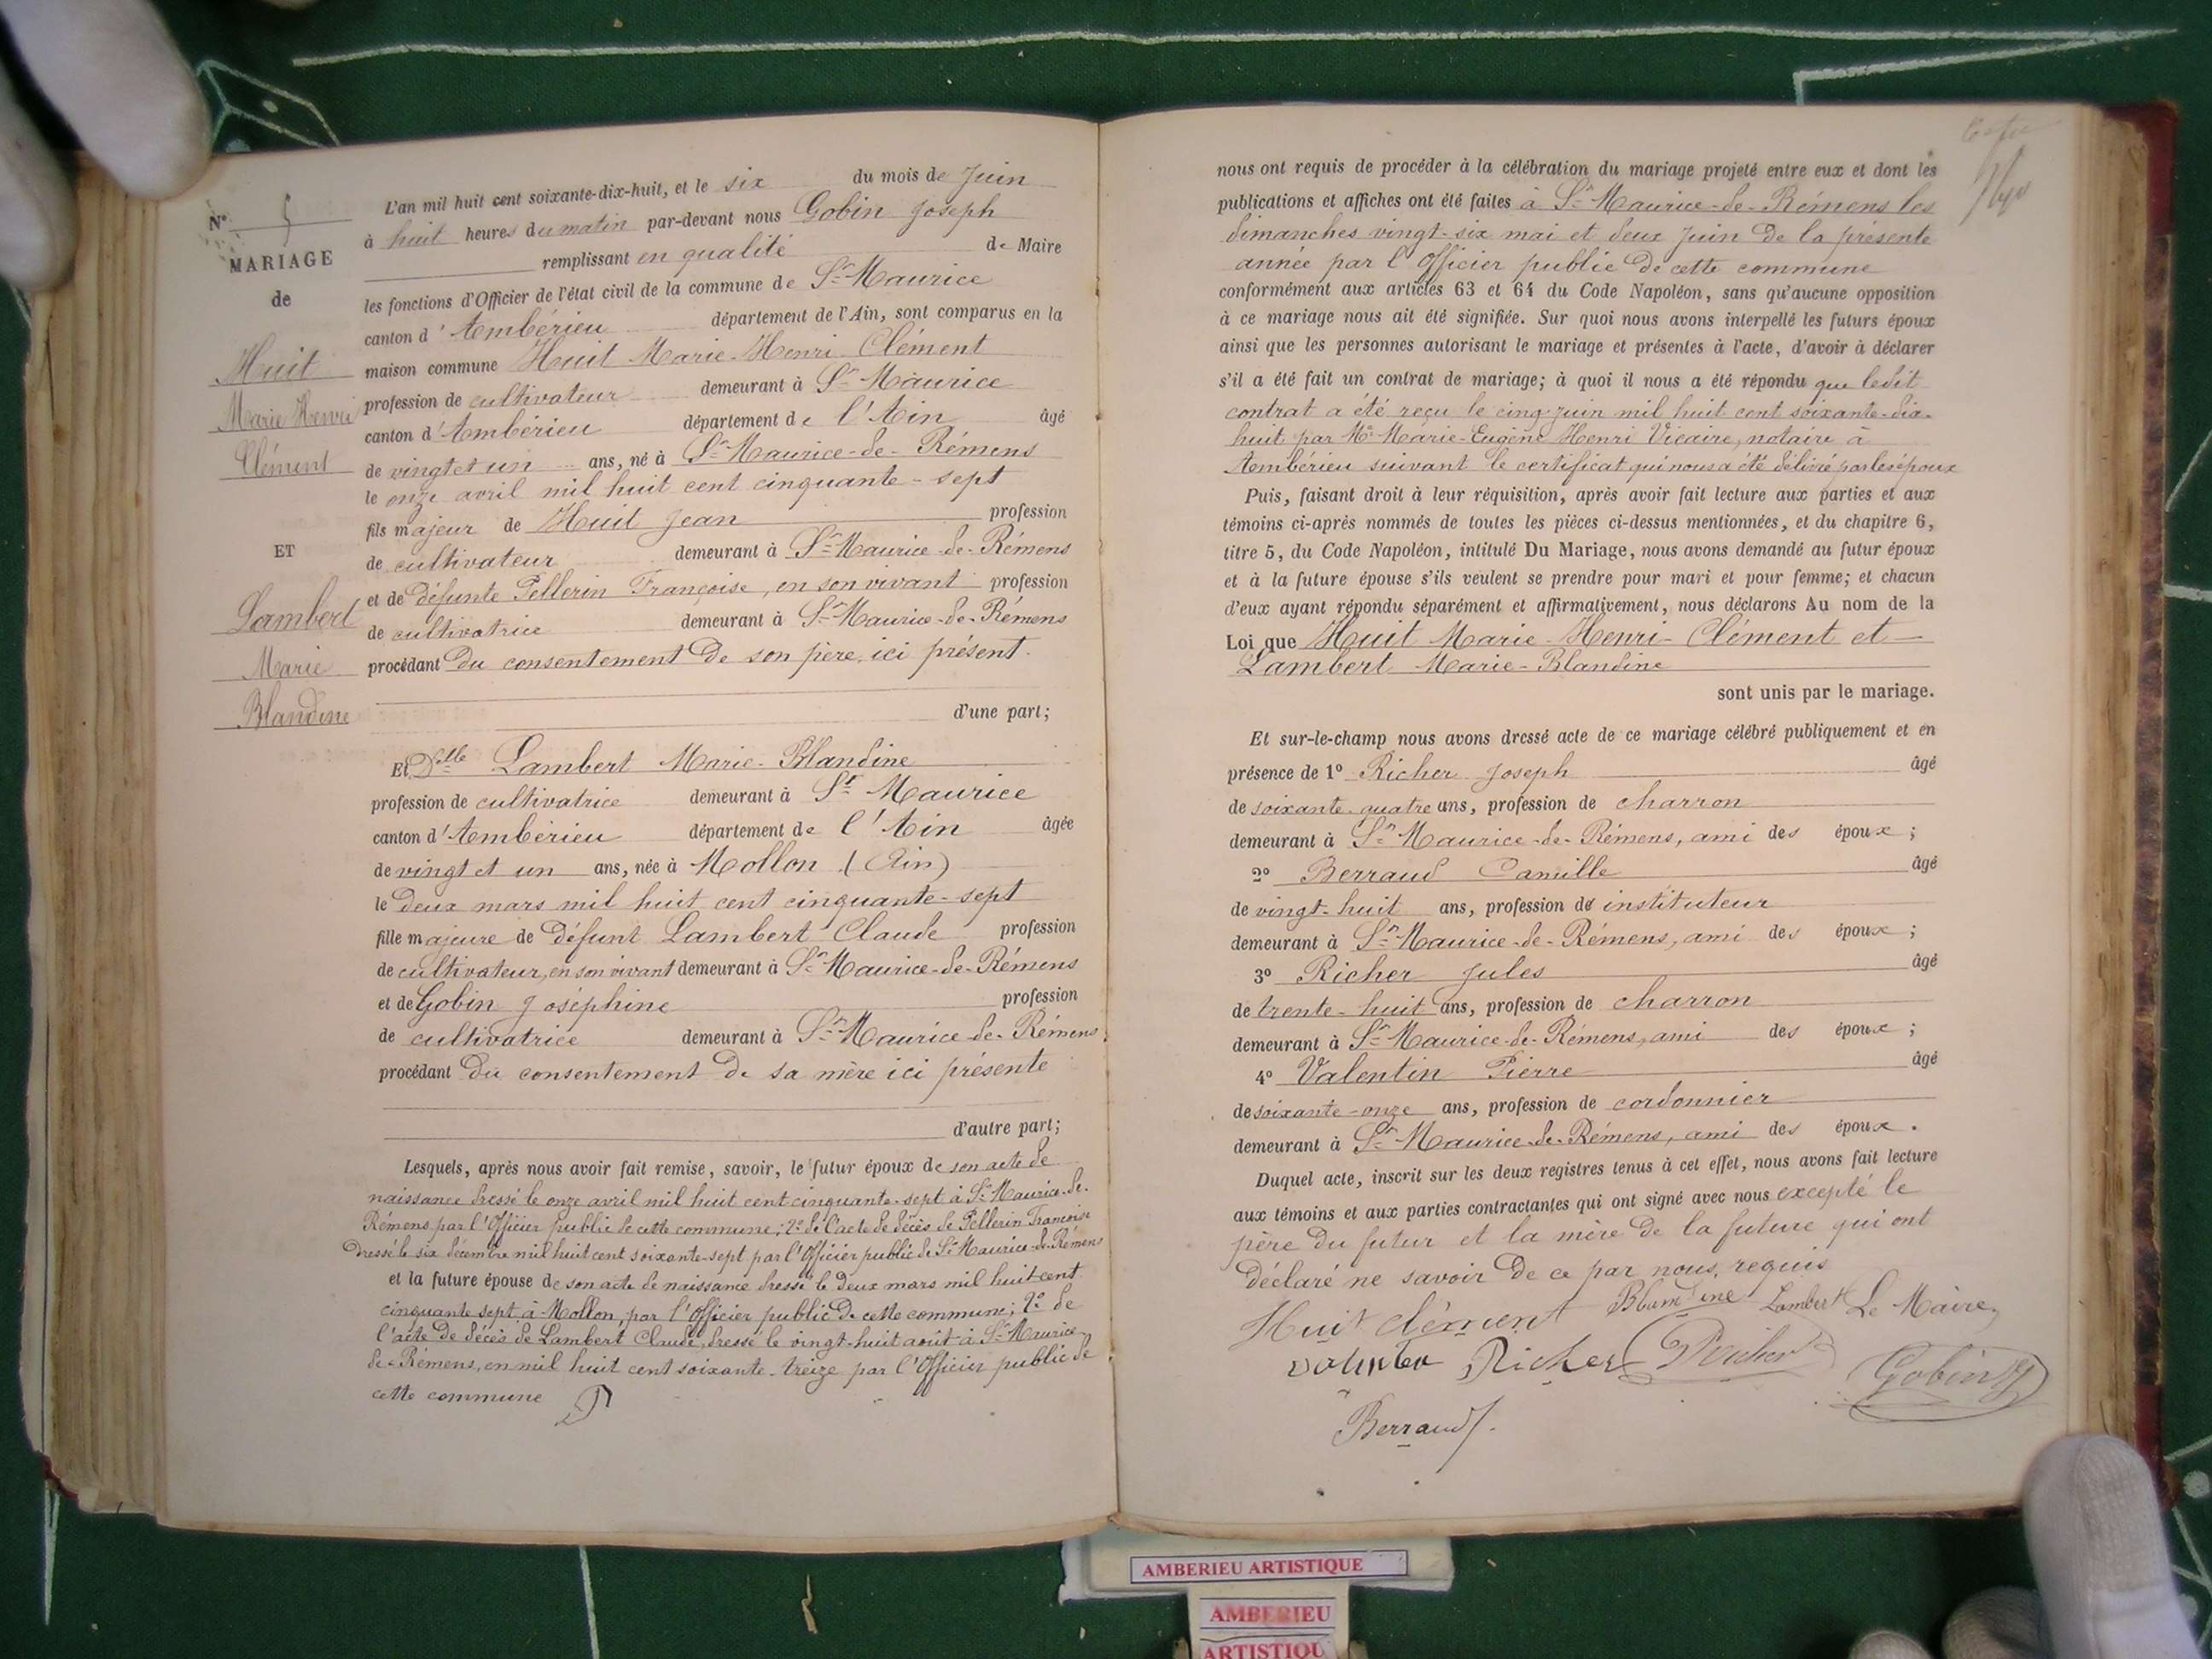 N° 5
MARIAGE
de
Huit
Marie Henri
Clément
ET
Lambert
Marie
Blandine
L'an mil huit cent soixante-dix-huit, et le six du mois de Juin
à huit heures du matin par-devant nous Gobin Joseph
remplissant en qualité de Maire
les fonctions d'Officier de l'état civil de la commune de St Maurice
canton d'Ambérieu département de l'Ain, sont comparus en la
maison commune Huit Marie-Henri-Clément
profession de cultivateur demeurant à St Maurice
canton d'Ambérieu département de l'Ain âgé
de vingt et un ans, né à St Maurice-de-Rémens
le onze avril mil huit cent cinquante-sept
fils majeur de Huit Jean profession
de cultivateur demeurant à St Maurice-de-Rémens
et de défunte Pellerin Françoise, en son vivant profession
de cultivatrice demeurant à St Maurice-de-Rémens
procédant du consentement de son père, ici présent.
d'une part;
Et Delle Lambert Marie-Blandine
profession de cultivatrice demeurant à St Maurice
canton d'Ambérieu département de l'Ain âgée
de vingt et un ans, née à Mollon (Ain)
le deux mars mil huit cent cinquante-sept
fille majeure de défunt Lambert Claude profession
de cultivateur, en son vivant demeurant à St Maurice-de-Rémens
et de Gobin Joséphine profession
de cultivatrice demeurant à St Maurice-de-Rémens
procédant du consentement de sa mère ici présente
d'autre part;
Lesquels, après nous avoir fait remise, savoir, le futur époux de son acte de
naissance dressé le onze avril mil huit cent cinquante-sept à St Maurice-de-
Rémens par l'Officier public de cette commune; 2° de l'acte de décès de Pellerin Françoise
dressé le six décembre mil huit cent soixante-sept par l'Officier public de St Maurice-de-Rémens
et la future épouse de son acte de naissance dressé le deux mars mil huit cent
cinquante sept à Mollon, par l'Officier public de cette commune; 2° de
l'acte de décès de Lambert Claude, dressé le vingt-huit août à St Maurice-
de-Rémens, en mil huit cent soixante-treize par l'Officier public de
cette commune
nous ont requis de procéder à la célébration du mariage projeté entre eux et dont les
publications et affiches ont été faites à St Maurice-de-Rémens les
dimanches vingt-six mai et deux Juin de la présente
année par l'Officier public de cette commune
conformément aux articles 63 et 64 du Code Napoléon, sans qu'aucune opposition
à ce mariage nous ait été signifiée. Sur quoi nous avons interpellé les futurs époux
ainsi que les personnes autorisant le mariage et présentes à l'acte, d'avoir à déclarer
s'il a été fait un contrat de mariage; à quoi il nous a été répondu que ledit
contrat a été reçu le cinq juin mil huit cent soixante-dix-
huit par Me Marie-Eugène Henri Vicaire, notaire à
Ambérieu suivant le certificat qui nous a été délivré par les époux
Puis, faisant droit à leur réquisition, après avoir fait lecture aux parties et aux
témoins ci-après nommés de toutes les pièces ci-dessus mentionnées, et du chapitre 6,
titre 5, du Code Napoléon, intitulé Du Mariage, nous avons demandé au futur époux
et à la future épouse s'ils veulent se prendre pour mari et pour femme; et chacun
d'eux ayant répondu séparément et affirmativement, nous déclarons Au nom de la
Loi que Huit Marie-Henri-Clément et
Lambert Marie-Blandine
sont unis par le mariage.
Et sur-le-champ nous avons dressé acte de ce mariage célébré publiquement et en
présence de 1° Richer Joseph âgé
de soixante-quatre ans, profession de charron
demeurant à St Maurice-de-Rémens, ami des époux;
2° Berraud Camille âgé
de vingt-huit ans, profession de instituteur
demeurant à St Maurice-de-Rémens, ami des époux;
3° Richer Jules âgé
de trente-huit ans, profession de charron
demeurant à St Maurice-de-Rémens, ami des époux;
4° Valentin Pierre âgé
de soixante-onze ans, profession de cordonnier
demeurant à St Maurice-de-Rémens, ami des époux.
Duquel acte, inscrit sur les deux registres tenus à cet effet, nous avons fait lecture
aux témoins et aux parties contractantes qui ont signé avec nous excepté le
père du futur et la mère de la future qui ont
déclaré ne savoir de ce par nous, requis
Huit clément Blandine Lambert Le Maire,
Richer Richer Gobin
Berraud
AMBERIEU ARTISTIQUE
AMBERIEU
ARTISTIQU